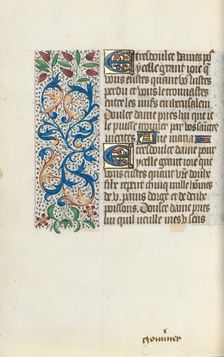 Tresdoulce dame po
ycelle grant ioie q
vous eustes quant vous leustes
perdu et vous le trouuastes
entre les iuifs en iherusalem
Doulce dame pries luy quant il
le puisse
merites Aue maria
Tresdoulce dame pour
ycelle grant ioie que vous
eustes quant vre doulx
filz reput chinq mille hōmes
de v. pains dorge et de deux
poissons. Doulce dame pries
luy quil vueille mes v. sens